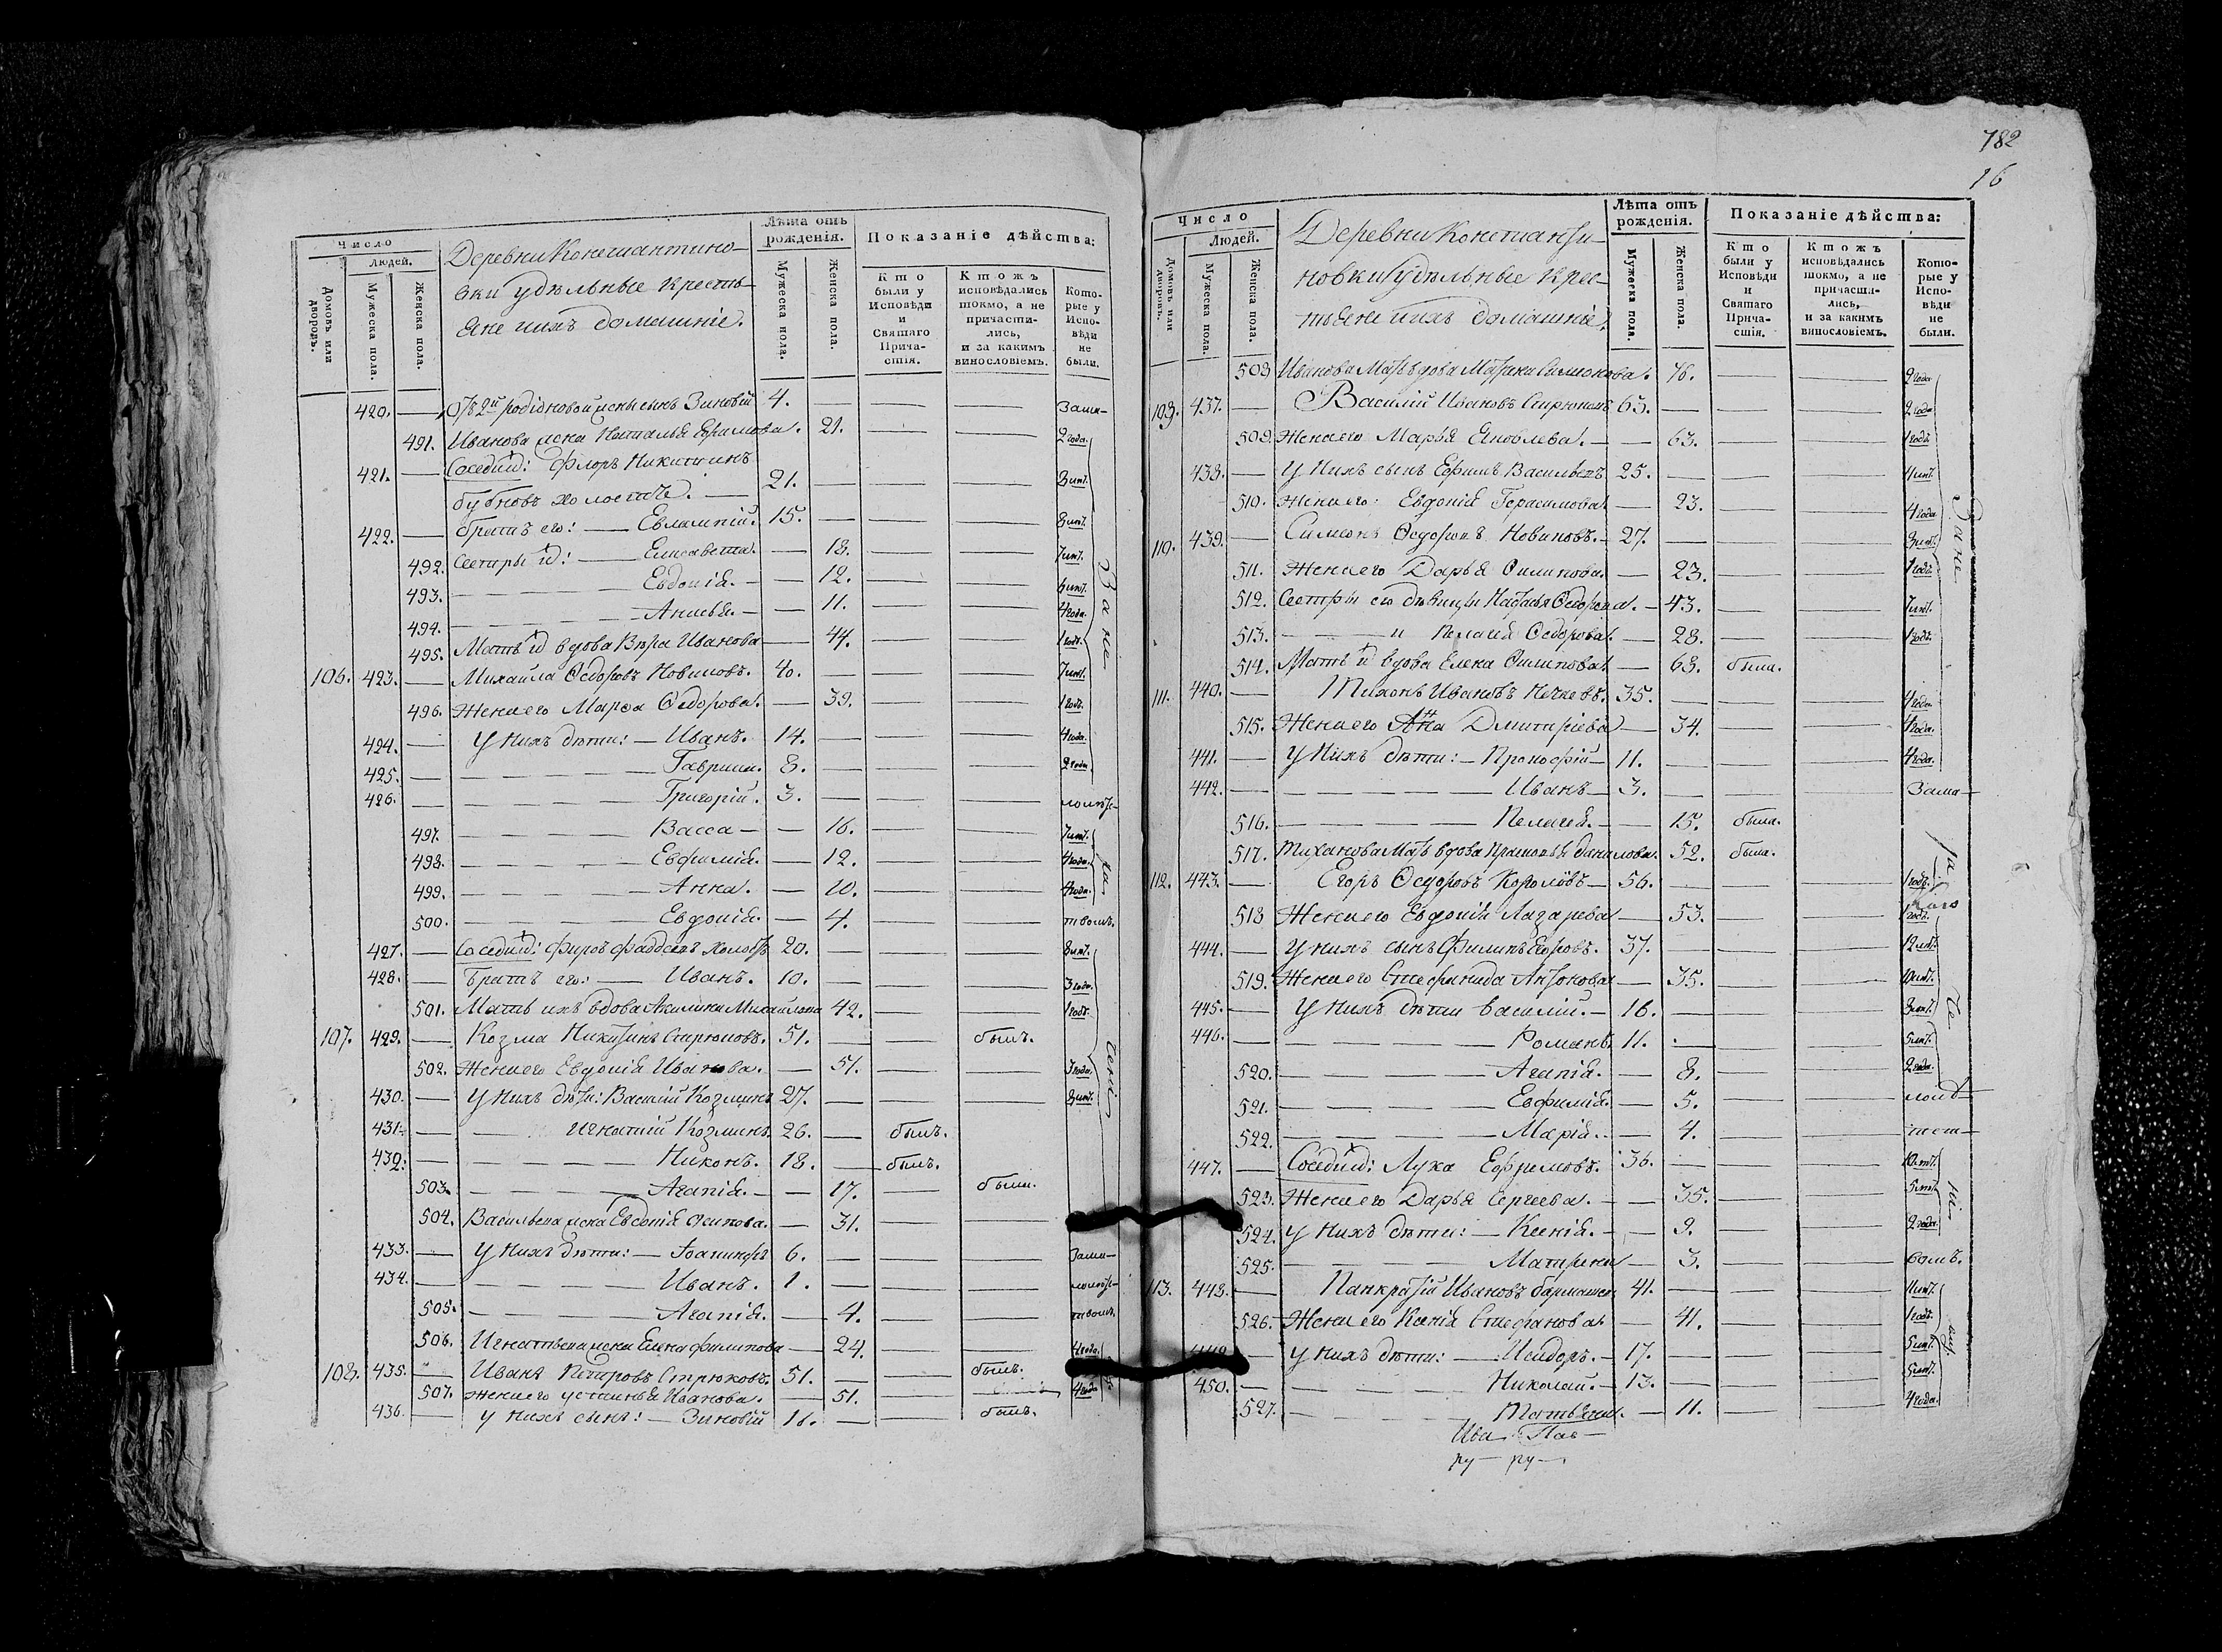 Число
Людей.
Домовъ или дворовъ.
Мужеска пола.
Женска пола.
Деревни Константино-
вки удѣльные кресть-
яне и ихъ домашніе.
Лѣта отъ рожденія.
Мужеска пола.
Женска пола.
Показаніе дѣйства:
Кто были у Исповѣди и Святаго Прича-стія.
Ктожъ исповѣдались токмо, а не причасти-лись, и за какимъ винословіемъ.
Кото-рые у Испо-вѣди не были.
420. — сынъ Зиновій 4. — — — Зама-
491. Иванова жена Наталья Ефимова. 21. — — 2 года.
421. — Соседи: Флоръ Никитинъ
бубновъ холостъ. — 21. — — —
422. — братъ его: — Евлампій. 15. — — —
492. Сестры — Елисавета. — 18. — — 7 лѣт.
493. — Евдокія. — — 12. — —
494. — Анисья. — — 11. — — 4 года.
495. Мать вдова Вѣра Иванова — 44. — — 1 годъ.
106. 423. — Михайла Ѳедоровъ Новиковъ. 40. — — 7 лѣт.
496. Жена его Марѳа Ѳедорова. — 39. — — 1 годъ.
424. — У нихъ дѣти: — Иванъ. 14. — — — 4 года.
425. — Гаврила. 8. — — — 2 года
426. — Григорій. 3. — — — малолѣт-
497. — Васса — — 16. — — 7 лѣт.
498. — Евфимія. — 12. — — 4 года.
499. — Анна. — 10. — — 4 года.
500. — Евдокія. — 4. — — ствомъ.
427. — Соседи: Фаддеевъ холостъ 20. — — —
428. — Братъ его: — Иванъ. 10. — — — 3 года.
501. Мать ихъ вдова Акилина Михайлова 42. — — 1 годъ.
107. 429. — Козма Никитинъ Стрюковъ. 51. — — былъ.
502. Жена его Евдокія Иванова. — 51. — — 3 года.
430. — У нихъ дѣти: Василій Козминъ 27. — — —
431. — Игнатій Козминъ. 26. — былъ.
432. — Никонъ. 18. — былъ.
503. — Агапія. — — 17. — была.
504. Васильева жена Евдокія Осипова. — 31. —
433. — У нихъ дѣти: — Іоанникій 6. — — — Зама-
434. — Иванъ. 1. — — — малолѣт-
505. — Агапія. — 4. — — ствомъ.
506. Игнатьева жена Елена Филипова — 24. — — 4 года.
108. 435. Иванъ Петровъ Стрюковъ. 51. — — былъ.
507. Жена его Устинья Иванова. 51. — 4 года
436. — У нихъ сынъ: — Зиновій 16. — — былъ.
За не
782
16
Число
Людей.
Домовъ или дворовъ.
Мужеска пола.
Женска пола.
Деревни Константи-
новки удѣльные крес-
тьяне и ихъ домашніе.
Лѣта отъ рожденія.
Мужеска пола.
Женска пола.
Показаніе дѣйства:
Кто были у Исповѣди и Святаго Прича-стія.
Ктожъ исповѣдались токмо, а не причасти-лись, и за какимъ винословіемъ.
Кото-рые у Испо-вѣди не были.
508 Иванова Мать вдова Симонова. 76. — — 2 года
109. 437. — Василій Ивановъ Стрюковъ 65. — — — 2 года
509. Жена его Марья Яковлева. — — 63. — — 1 годъ.
438. — У нихъ сынъ Ефимъ Васильевъ 25. — — —
510. Жена его Евдокія Герасимова. — 23. — — 4 года
110. 439. — Симеонъ Ѳедоровъ Новиковъ. — 27. — — —
511. Жена его Дарья Филипова. — 23. — — 1 годъ.
512. Сестры его дѣвицы Наталья Ѳедорова. — 43. — — 7 лѣт.
513. — и Пелагея Ѳедорова. — 28. — — 1 годъ.
514. Мать вдова Елена Филипова. — 63. была.
111. 440. — Тихонъ Ивановъ 35. — — — 4 года
515. Жена его Анна Дмитріева — 34. — — 4 года.
441. — У нихъ дѣти: — Прокофій — 11. — — — 4 года.
442. — Иванъ — 3. — — — Зама-
516. — Пелагея. — — 15. была.
517. Тихонова Мать вдова Прасковья Данилова. 52. была.
112. 443. — Егоръ Ѳедоровъ Королёвъ — 56. — — — 1 годъ.
518 Жена его Евдокія Лазарева — 53. — — 1 годъ.
444. — У нихъ сынъ Филипъ Егоровъ. 37. — — — 12 лѣт.
519. Жена его Стефанида Антонова — 35. — — 10 лѣт.
445. — У нихъ дѣти Василій. — 16. — — —
446. — Романъ. 11. — — — 5 лѣт.
520. — Агапія. — 8. — — 2 года.
521. — Евфимія. — 5. — —
522. — Марія. — 4. — —
447. — Соседи: Лука Ефремовъ. 36. — — — 10 лѣт.
523. Жена его Дарья Сергеева. — — 35. — — 5 лѣт.
524. У нихъ дѣти: — Ксенія. — — 9. — — 2 года.
525. — Матрена — 3. — — вомъ.
113. 448. — Панкратій Ивановъ 41. — — — 11 лѣт.
526. Жена его Ксенія Стефанова. — 41. — — 1 годъ.
449. — У нихъ дѣти: — Исидоръ. — 17. — — — 5 лѣт.
450. — Николай. — 13. — — — 5 лѣт.
527. — Татьяна. — 11. — — 4 года.